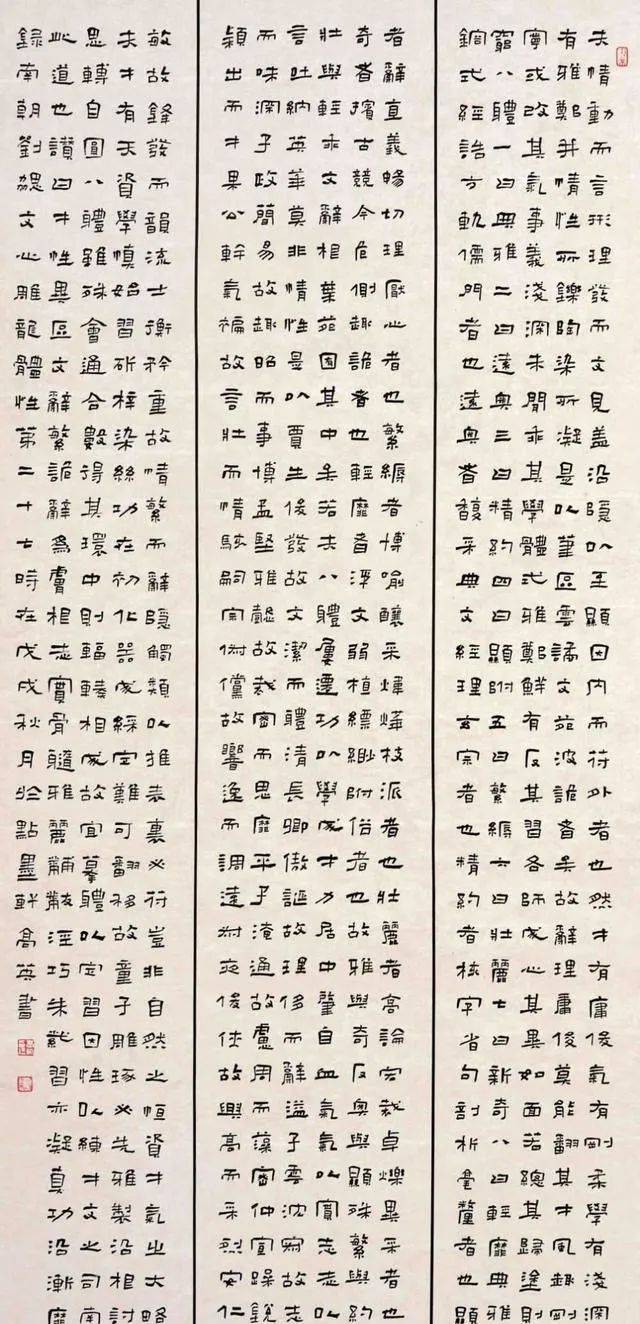 夫情動而言形理發而文見蓋沿隱以至顯因內而符外者也然才有庸俊氣有剛柔學有淺深
有雅鄭并情性所鑠陶染所凝是以筆區雲譎文苑波詭者矣故辭理庸俊莫能翻其才風趣剛
寧或改其氣事義淺深未聞乖其學體式雅鄭鮮有反其習各師成心其異如面若總其歸塗則
窮八體一曰典雅二曰遠奧三曰精約四曰顯附五曰繁縟六曰壯麗七曰新奇八曰輕靡典雅
鎔式經誥方軌儒門者也遠奧者馥采典文經理玄宗者也精約者核字省句剖析毫釐者也顯
者辭直義暢切理厭心者也繁縟者博喻釀采煒燁枝派者也壯麗者高論宏裁卓爍異采者也
奇者擯古競今危側趣詭者也輕靡者浮文弱植縹緲附俗者也故雅與奇反奧與顯殊繁與約
壯與輕乖文辭相葉苑囿其中矣若夫八體屢遷功以學成才力居中肇自血氣氣以實志志以
言吐納英華莫非情性是以賈生俊發故文潔而體清長卿傲誕故理侈而辭溢子雲沈寂故志
而味深子政簡易故趣昭而事博孟堅雅懿故裁密而思靡平子淹通故慮周而藻密仲宣躁銳
穎出而才果公幹氣褊故言壯而情駭嗣宗俶儻故響逸而調遠叔夜俊俠故興高而采烈安仁
敏故鋒發而韻流士衡矜重故情繁而辭隱觸類以推表裏必符豈非自然之恆資才氣之大略
夫才有天資學慎始習斲梓染絲功在初化器成綵定難可翻移故童子雕琢必先雅製沿相討
思轉自圓八體雖殊會通合數得其環中則輻輳相成故宜摹體以定習因性以練才文之司南
此道也讚曰才性異區文辭繁詭辭為膚相志實骨髓雅麗黼黻淫巧朱紫習亦凝真功沿漸靡
錄南朝劉勰文心雕龍體性第二十七時在戊戌秋月於點墨軒高英書